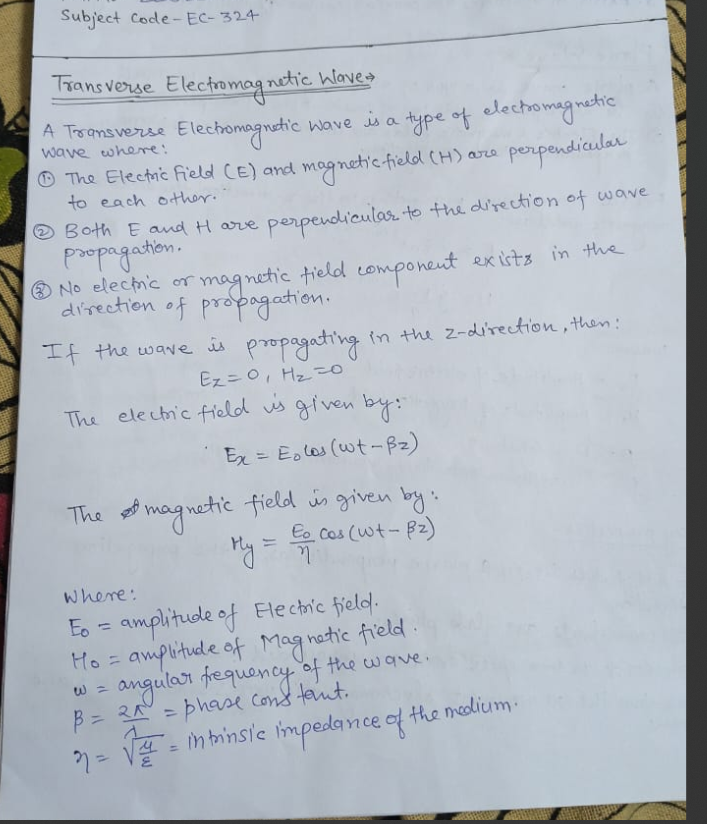 Subject Code - EC-324
Transverse Electromagnetic Wave→
A Transverse Electromagnetic Wave is a type of electromagnetic
wave where:
① The Electric Field (E) and magnetic field (H) are perpendicular
to each other.
② Both E and H are perpendicular to the direction of wave
propagation.
③ No electric or magnetic field component exists in the
direction of propagation.
If the wave is propagating in the z-direction, then:
Ez=0, Hz=0
The electric field is given by:
Ex = E₀ cos(ωt-βz)
The magnetic field is given by:
Hy = E₀/η cos(ωt-βz)
Where:
E₀ = amplitude of Electric field.
H₀ = amplitude of Magnetic field.
ω = angular frequency of the wave.
β = 2π/λ = phase constant.
η = √(μ/ε) = intrinsic impedance of the medium.